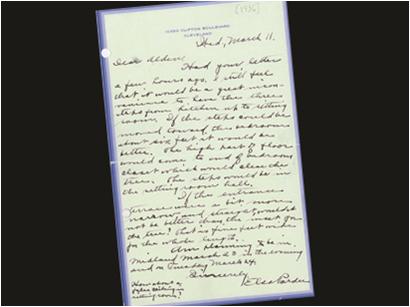 [1936]
11250 CLIFTON BOULEVARD
CLEVELAND
Wed, March 11.
Dear Alden:
Had your letter
a few hours ago. I still feel
that it would be a great incon-
venience to have the three
steps from kitchen up to sitting
room. If the steps could be
moved toward the bedrooms
about six feet it would be
better. The high part of floor
would come to end of bedroom
closet which would clear the
tree. The steps would be in
the sitting room hall.
If the entrance
terrace were a bit more
narrow and straight, wouldn't it
not be better than the inset for
the tree? That is fine feet wide
for the whole length.
Am planning to be in
Midland March 23 in the evening
and on Tuesday March 24.
Sincerely
How about a
in
sitting room?